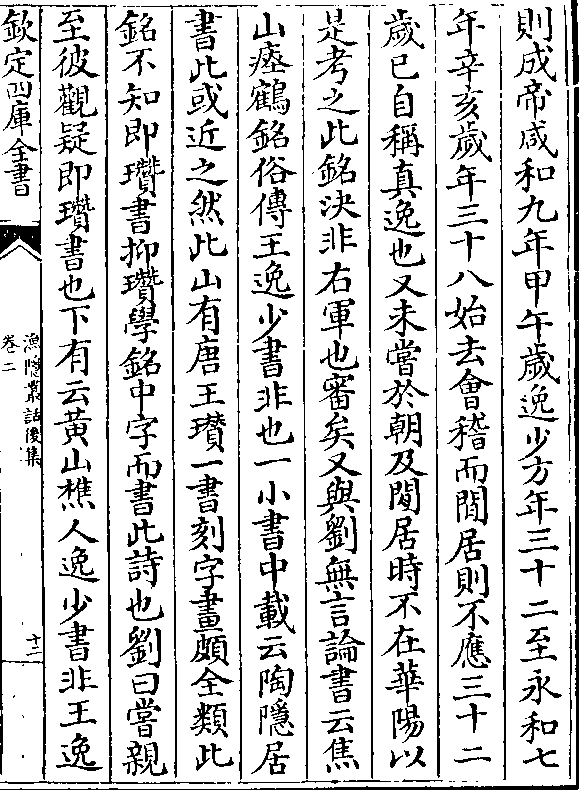 則成帝咸和九年甲午歲逸少方年三十二至永和七
年辛亥歲年三十八始去會稽而閒居則不應三十二
歲已自稱真逸也又未嘗於朝及閒居時不在華陽以
是考之此銘決非右軍也審矣又與劉無言論書云焦
山瘞鶴銘俗傳王逸少書非也一小書中載云陶隱居
書此或近之然此山有唐王瓚一書刻字畫頗全類此
銘不知即瓚書抑瓚學銘中字而書此詩也劉曰嘗親
至彼觀疑即瓚書也下有云黃山樵人逸少書非王逸
欽定四庫全書
漁隱叢話後集
卷二
十二